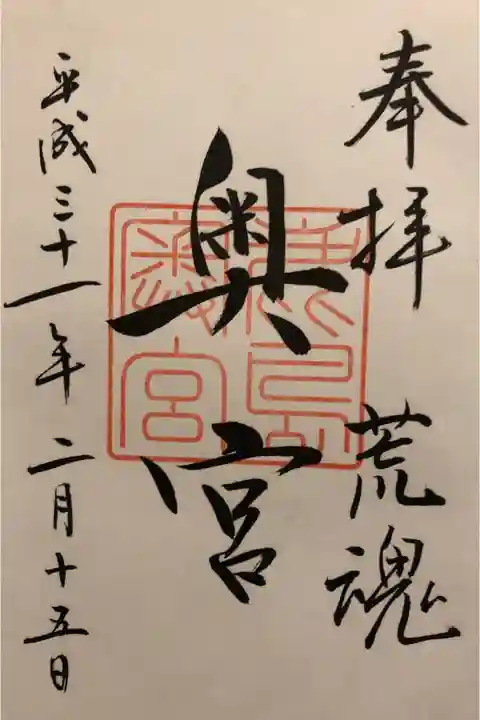 奉拝　荒魂
奥宮
鹿島奥宮
平成三十一年二月十五日